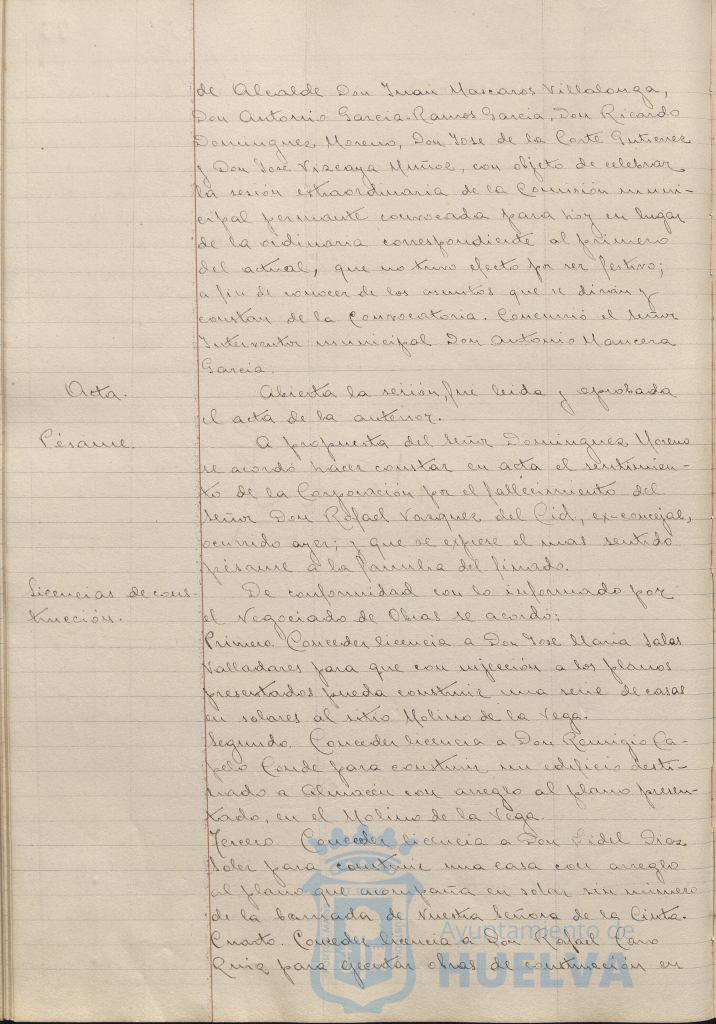 de Alcalde Don Juan Mascaros Villalonga,
Don Antonio Garcia-Ramos Garcia, Don Ricardo
Dominguez Moreno, Don Jose de la Corte Gutierrez
y Don José Vizcaya Muñoz, con objeto de celebrar
la sesión extraordinaria de la Comisión muni-
cipal permante convocada para hoy en lugar
de la ordinaria correspondiente al primero
del actual, que no tuvo efecto por ser festivo;
a fin de conocer de los asuntos que se dirán y
constan de la Convocatoria. Concurrió el Señor
Interventor municipal Don Antonio Mancera
Garcia.
Acta. Abierta la sesión, fué leida y aprobada
el acta de la anterior.
Pésame. A propuesta del Señor Dominguez Moreno
se acordó hacer constar en acta el sentimien-
to de la Corporación por el fallecimiento del
Señor Don Rafael Vazquez del Cid, ex-concejal,
ocurrido ayer; y que se exprese el mas sentido
pésame a la familia del finado.
Licencias de cons- De conformidad con lo informado por
trucción. el Negociado de Obras se acordó:
Primero. Conceder licencia a Don Jose Maria Salas
Valladares para que con sujección a los planos
presentados pueda construir una serie de casas
en solares al sitio Molino de la Vega.
Segundo. Conceder licencia a Don Remigio Ca-
pelo Conde para construir un edificio desti-
nado a Almacén con arreglo al plano presen-
tado, en el Molino de la Vega.
Tercero. Conceder licencia a Don Fidel Diaz
Soler para construir una casa con arreglo
al plano que acompaña en solar sin número
de la barriada de Nuestra Señora de la Cinta.
Cuarto. Conceder licencia a Don Rafael Caro
Ruiz para ejecutar obras de construcción en
Ayuntamiento de
HUELVA